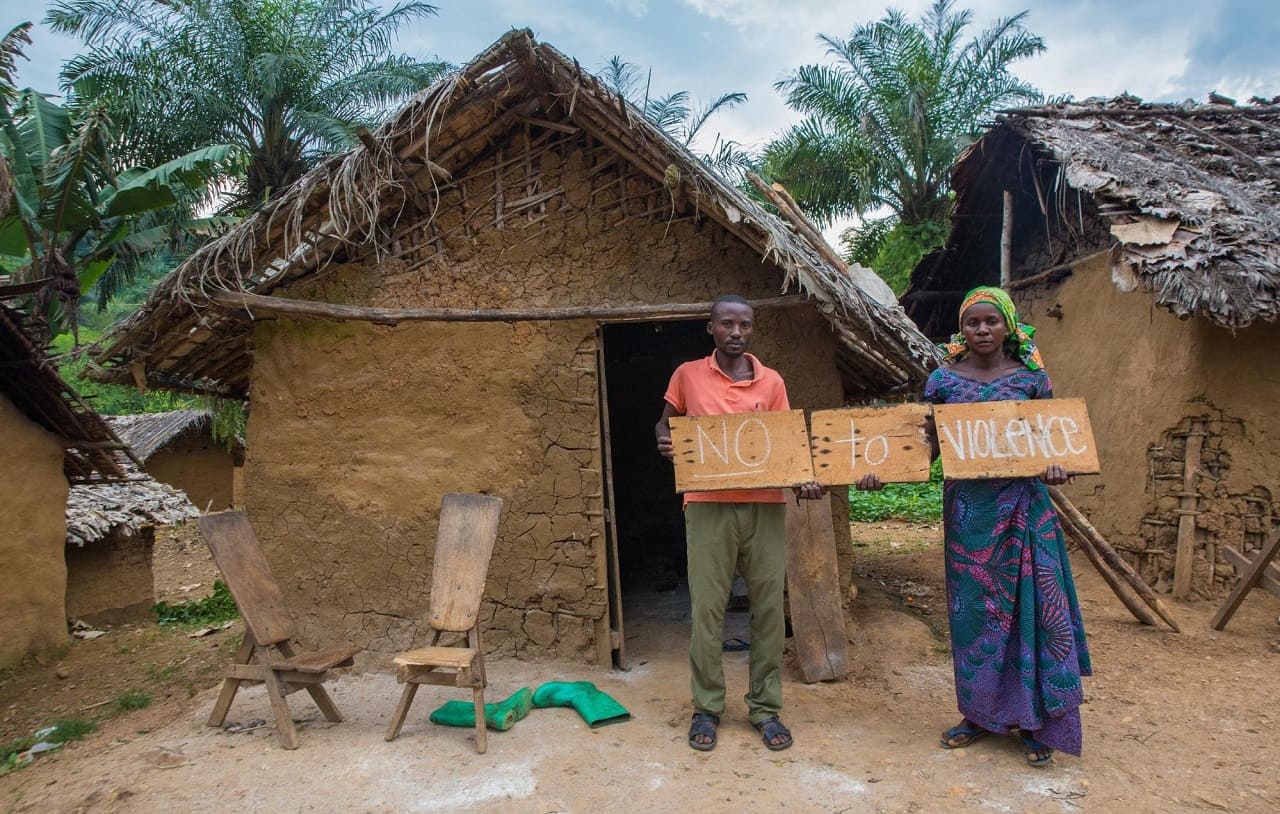 NO to VIOLENCE